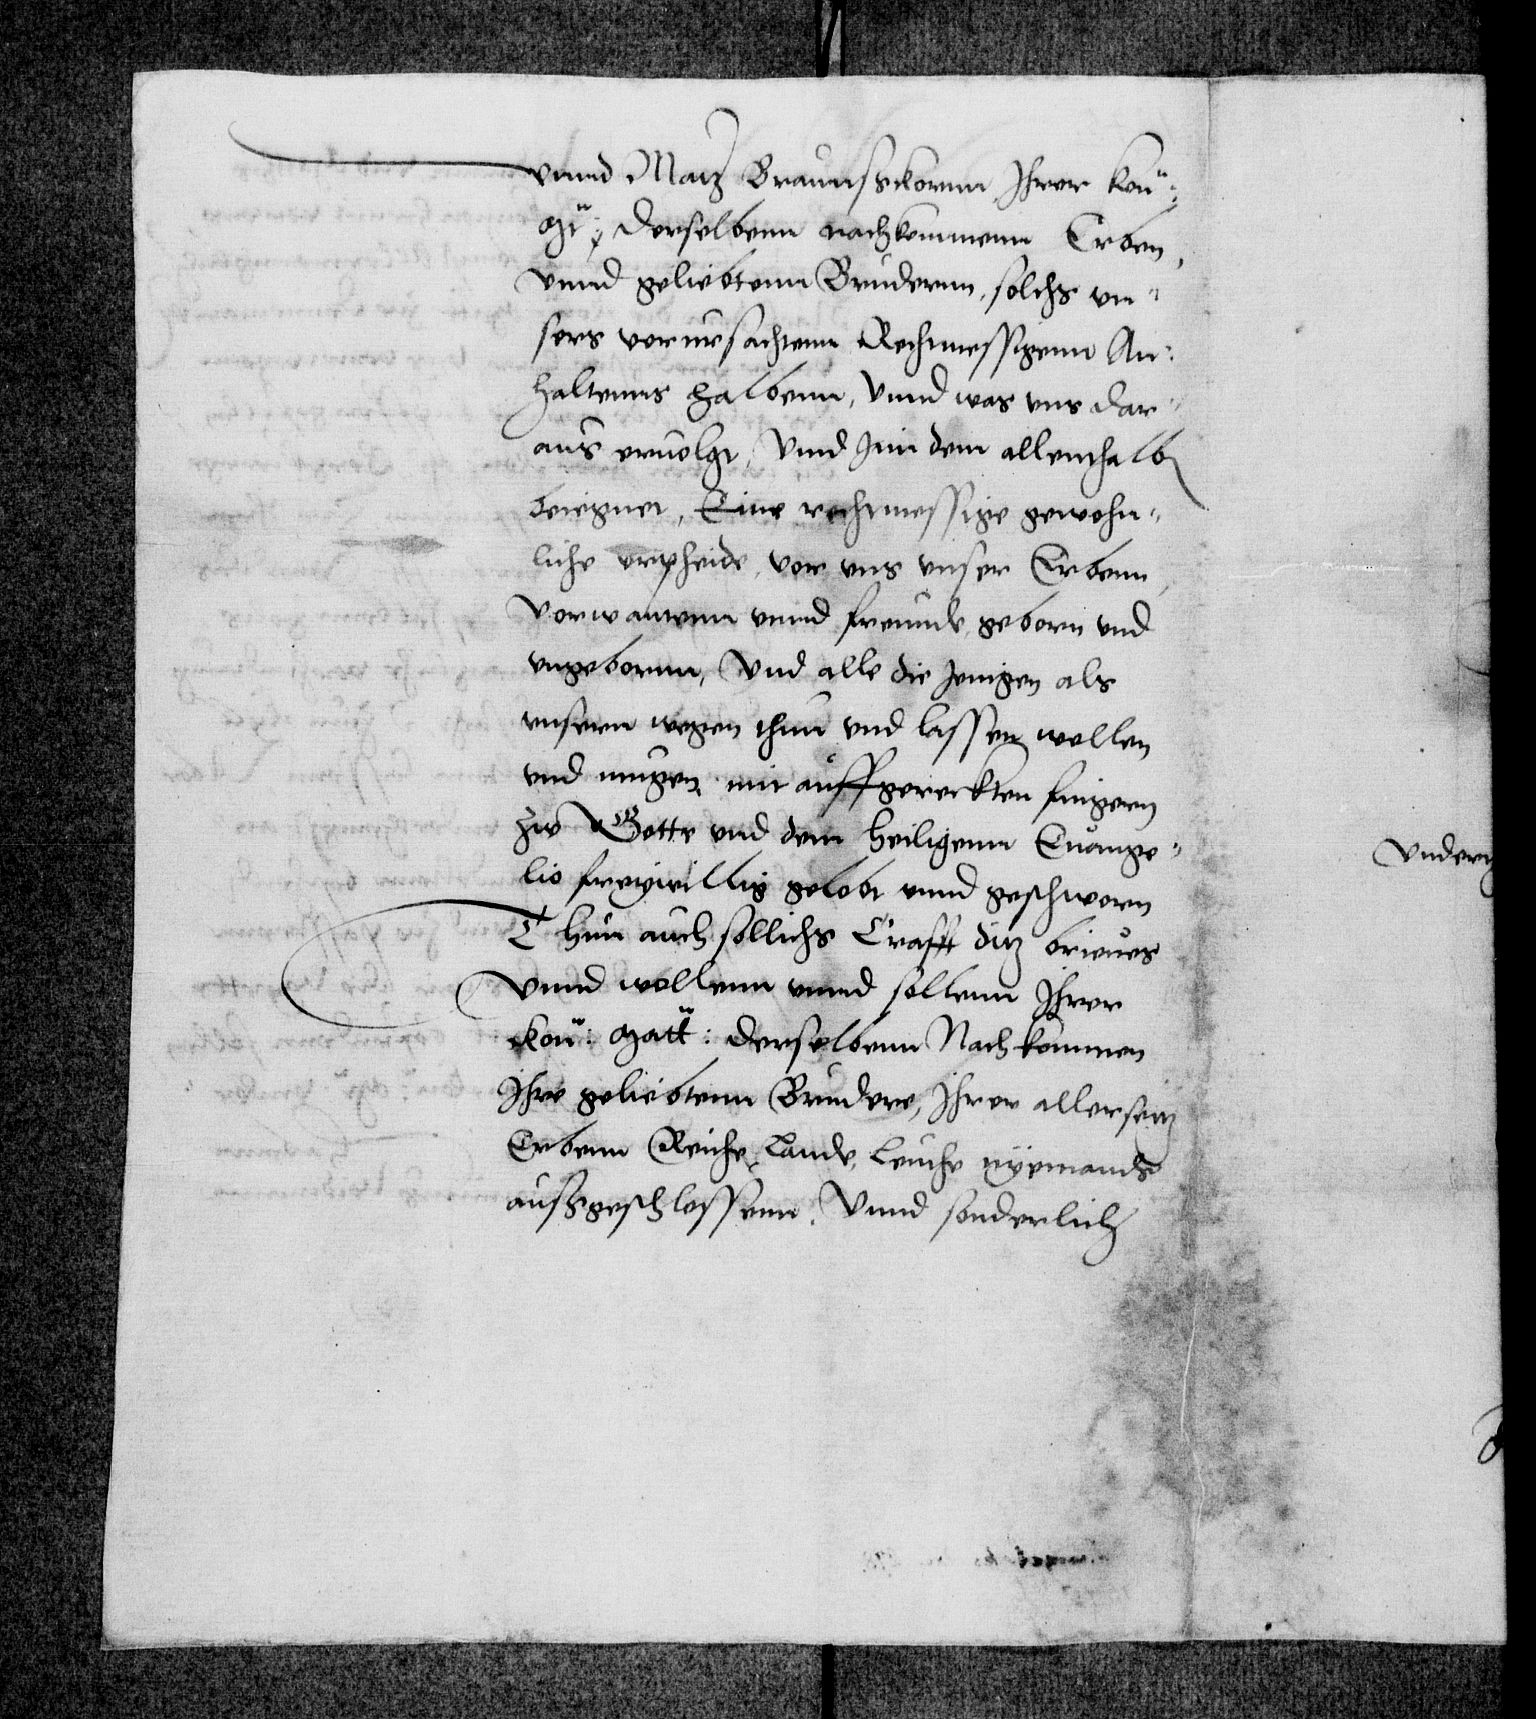 vnnd Matz Braunsdornn Ihrer kon:
Mt: derselbenn nachkommenn Erben,
vnnd geliebtenn Brudernn, solchs vn-
sers vorursachtenn Rechtmessigenn An:
haltenns halbenn, vnnd was vns dar-
aus eruolgt, Vnnd Inn dem allenthalb
beiegnet, Eine rechtmessige gewohn-
liche vrpheide, vor vns vnser Erbenn,
Vorwantenn vnnd freunde, geborn vnd
vngebornn, Vnd alle die Jenigen als
vnsernn wegen thun vnd lassen wollen
vnd mugen, mit auffgereckten fingern
zw Gotte vnd dem heiligenn Euange-
lio freywillig gelobt vnnd geschworn
Thun auch sollichs Crafft ditz brieues
Vnnd wollenn vnnd sollenn Ihrer
kon: Matt: derselbenn Nachkommen
Ihre geliebtenn Brudere, Ihrer allerseitz
Erbenn Reiche, Lande, Leuthe nyemands
ausgeschlossenn, Vnnd sonderlich